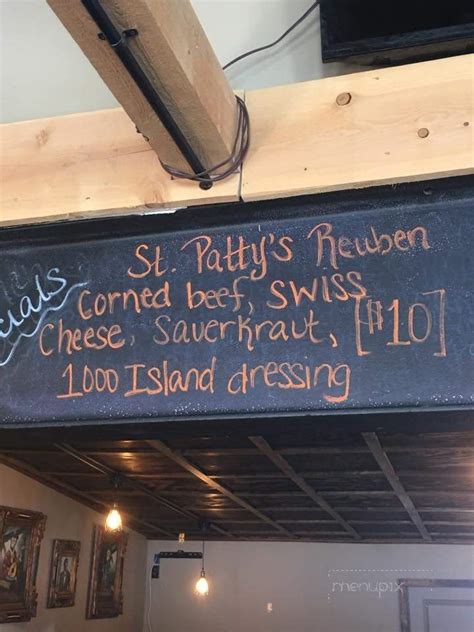 St. Patty's Reuben
Corned beef, SWISS
Cheese, Sauerkraut, [$10]
1000 Island dressing
menupix